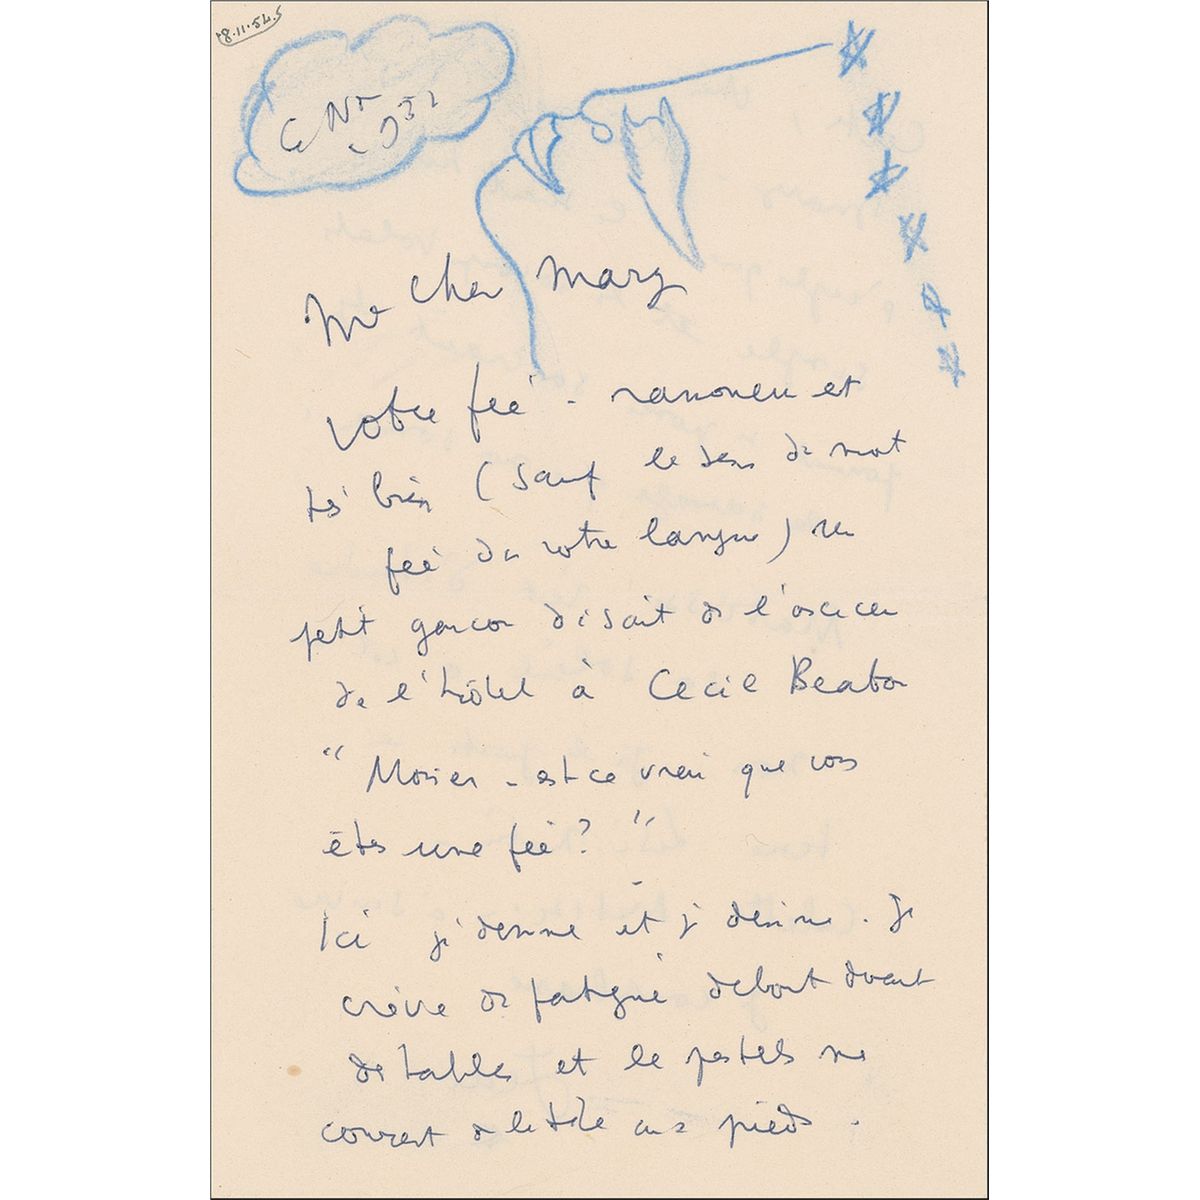 18.11.54.5
Ma chère Mary
votre fée - ramoneur est
très bien (sauf le sens du mot
fée dans votre langue) un
petit garçon disait de l'ascenseur
de l'hôtel à Cecil Beaton
" Mosieu - est ce vrai que vous
êtes une fée ? "
Ici je dessine et je dessine. Je
crève de fatigue debout devant
des tables et les pastels me
couvrent de la tête aux pieds.